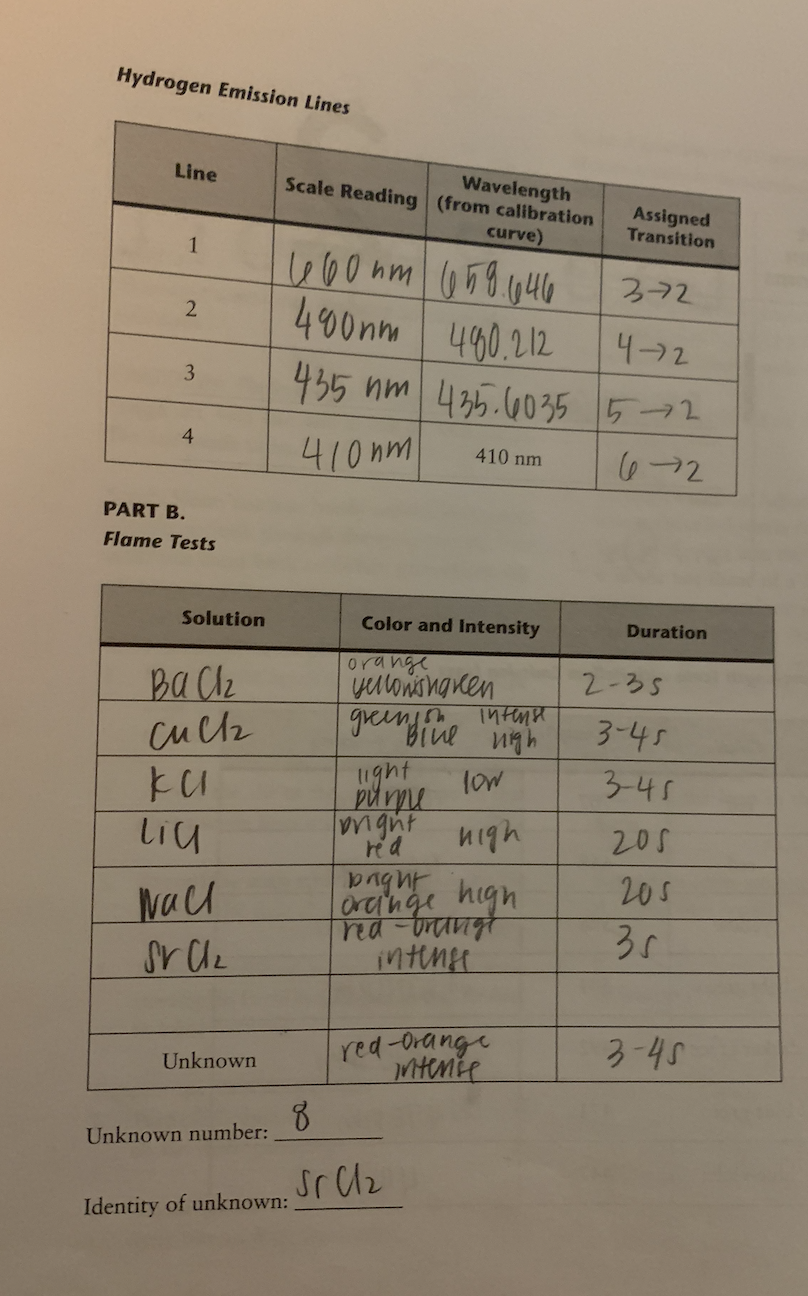 Hydrogen Emission Lines
Line
Scale Reading
Wavelength
(from calibration
curve)
Assigned
Transition
1
660 nm
658.646
3→2
2
480nm
480.212
4→2
3
435 nm
435.6035
5→2
4
410nm
410 nm
6→2
PART B.
Flame Tests
Solution
Color and Intensity
Duration
BaCl2
orange
yellowishgreen
2-3s
CuCl2
greenish intense
blue high
3-4s
KCl
light
purple low
3-4s
LiCl
bright
red high
20s
NaCl
bright
orange high
20s
SrCl2
red-orange
intense
3s
Unknown
red-orange
intense
3-4s
Unknown number: 8
Identity of unknown: SrCl2